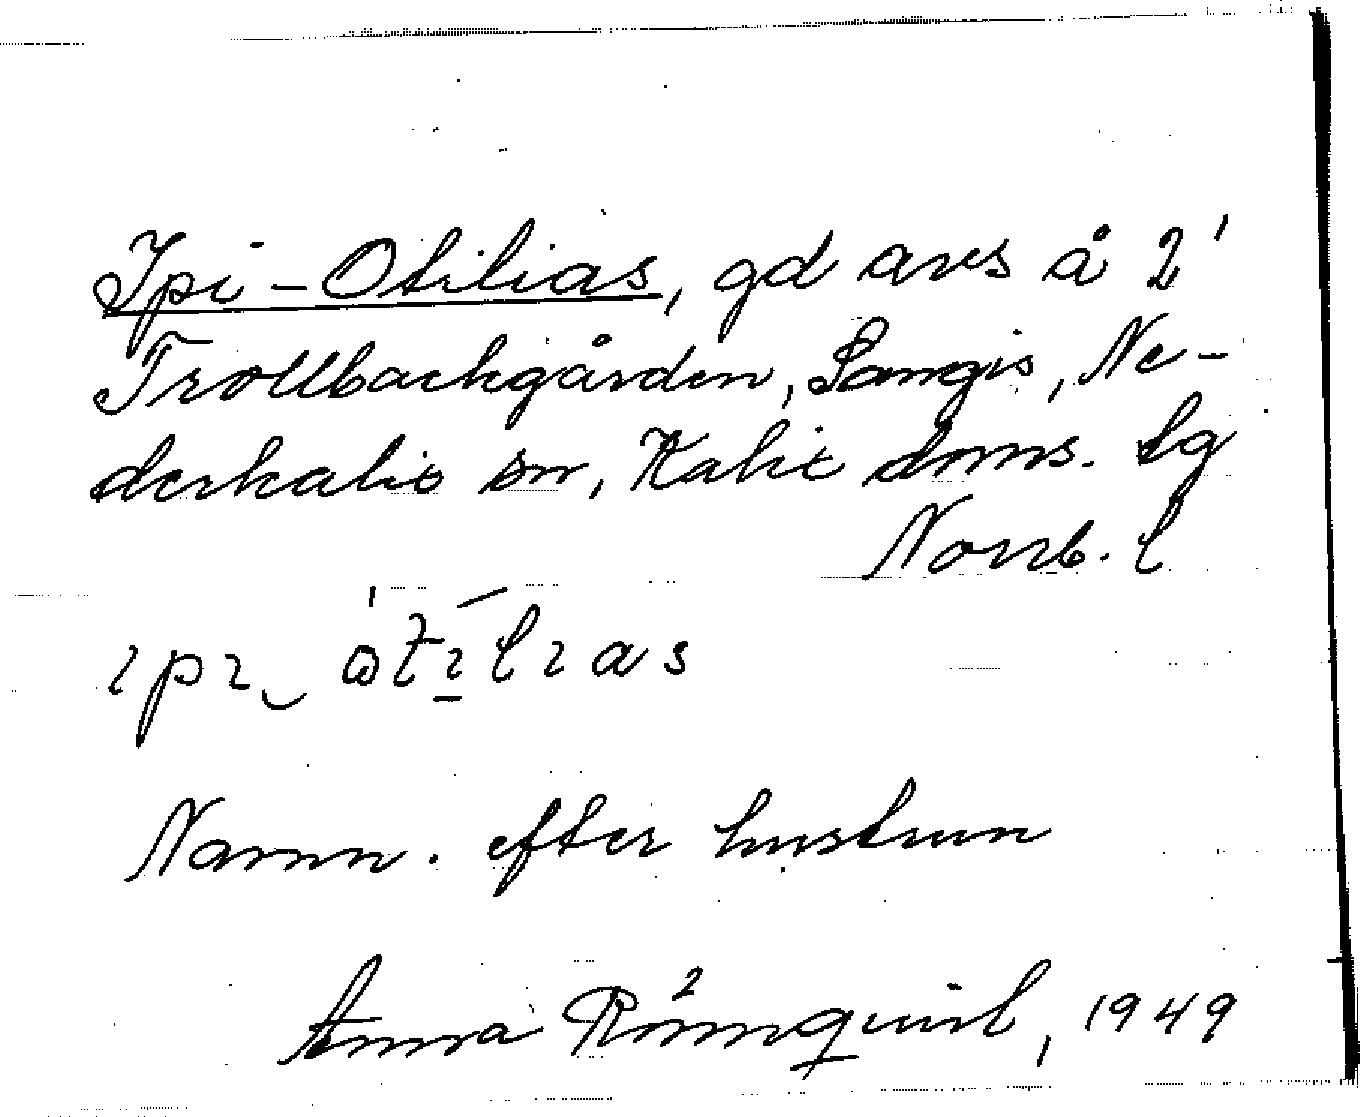 Ipi-Otilias, gd avs å 2¹
Trollbäckgården, Sangis, Ne-
derkalix sn, Kalix doms. tg
Norrb. l
ɩpɩ‿ òtɩ̄lɩas
Namn. efter hustrun
Anna Rönnquist, 1949